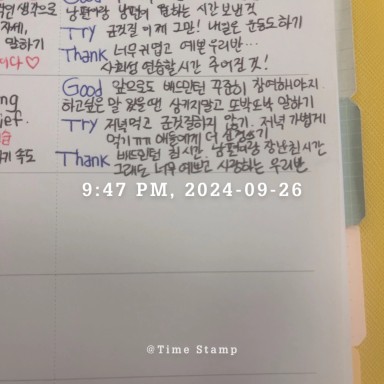 적인 생각으로
자세,
말하기
니다♡
남편이랑 남편이 말하는 시간 보낼 것
Try 군것질 이제 그만! 내일은 운동도 하기
Thank 너무 귀엽고 예쁜 우리반…
사회성 연습할 시간 주어진 것!
ng
ief.
습
기 속도
Good 앞으로도 배드민턴 꾸준히 참여해야지.
하고싶은 말 있을 땐 삼키지말고 또박또박 말하기
Try 저녁먹고 군것질하지 않기. 저녁 가볍게
먹기ㅠㅠ 애들에게 더
Thank 배드민턴 침 시간. 남편이랑 장난친 시간
그래도 너무 예쁘고 사랑하는 우리반
9:47 PM, 2024-09-26
@Time Stamp